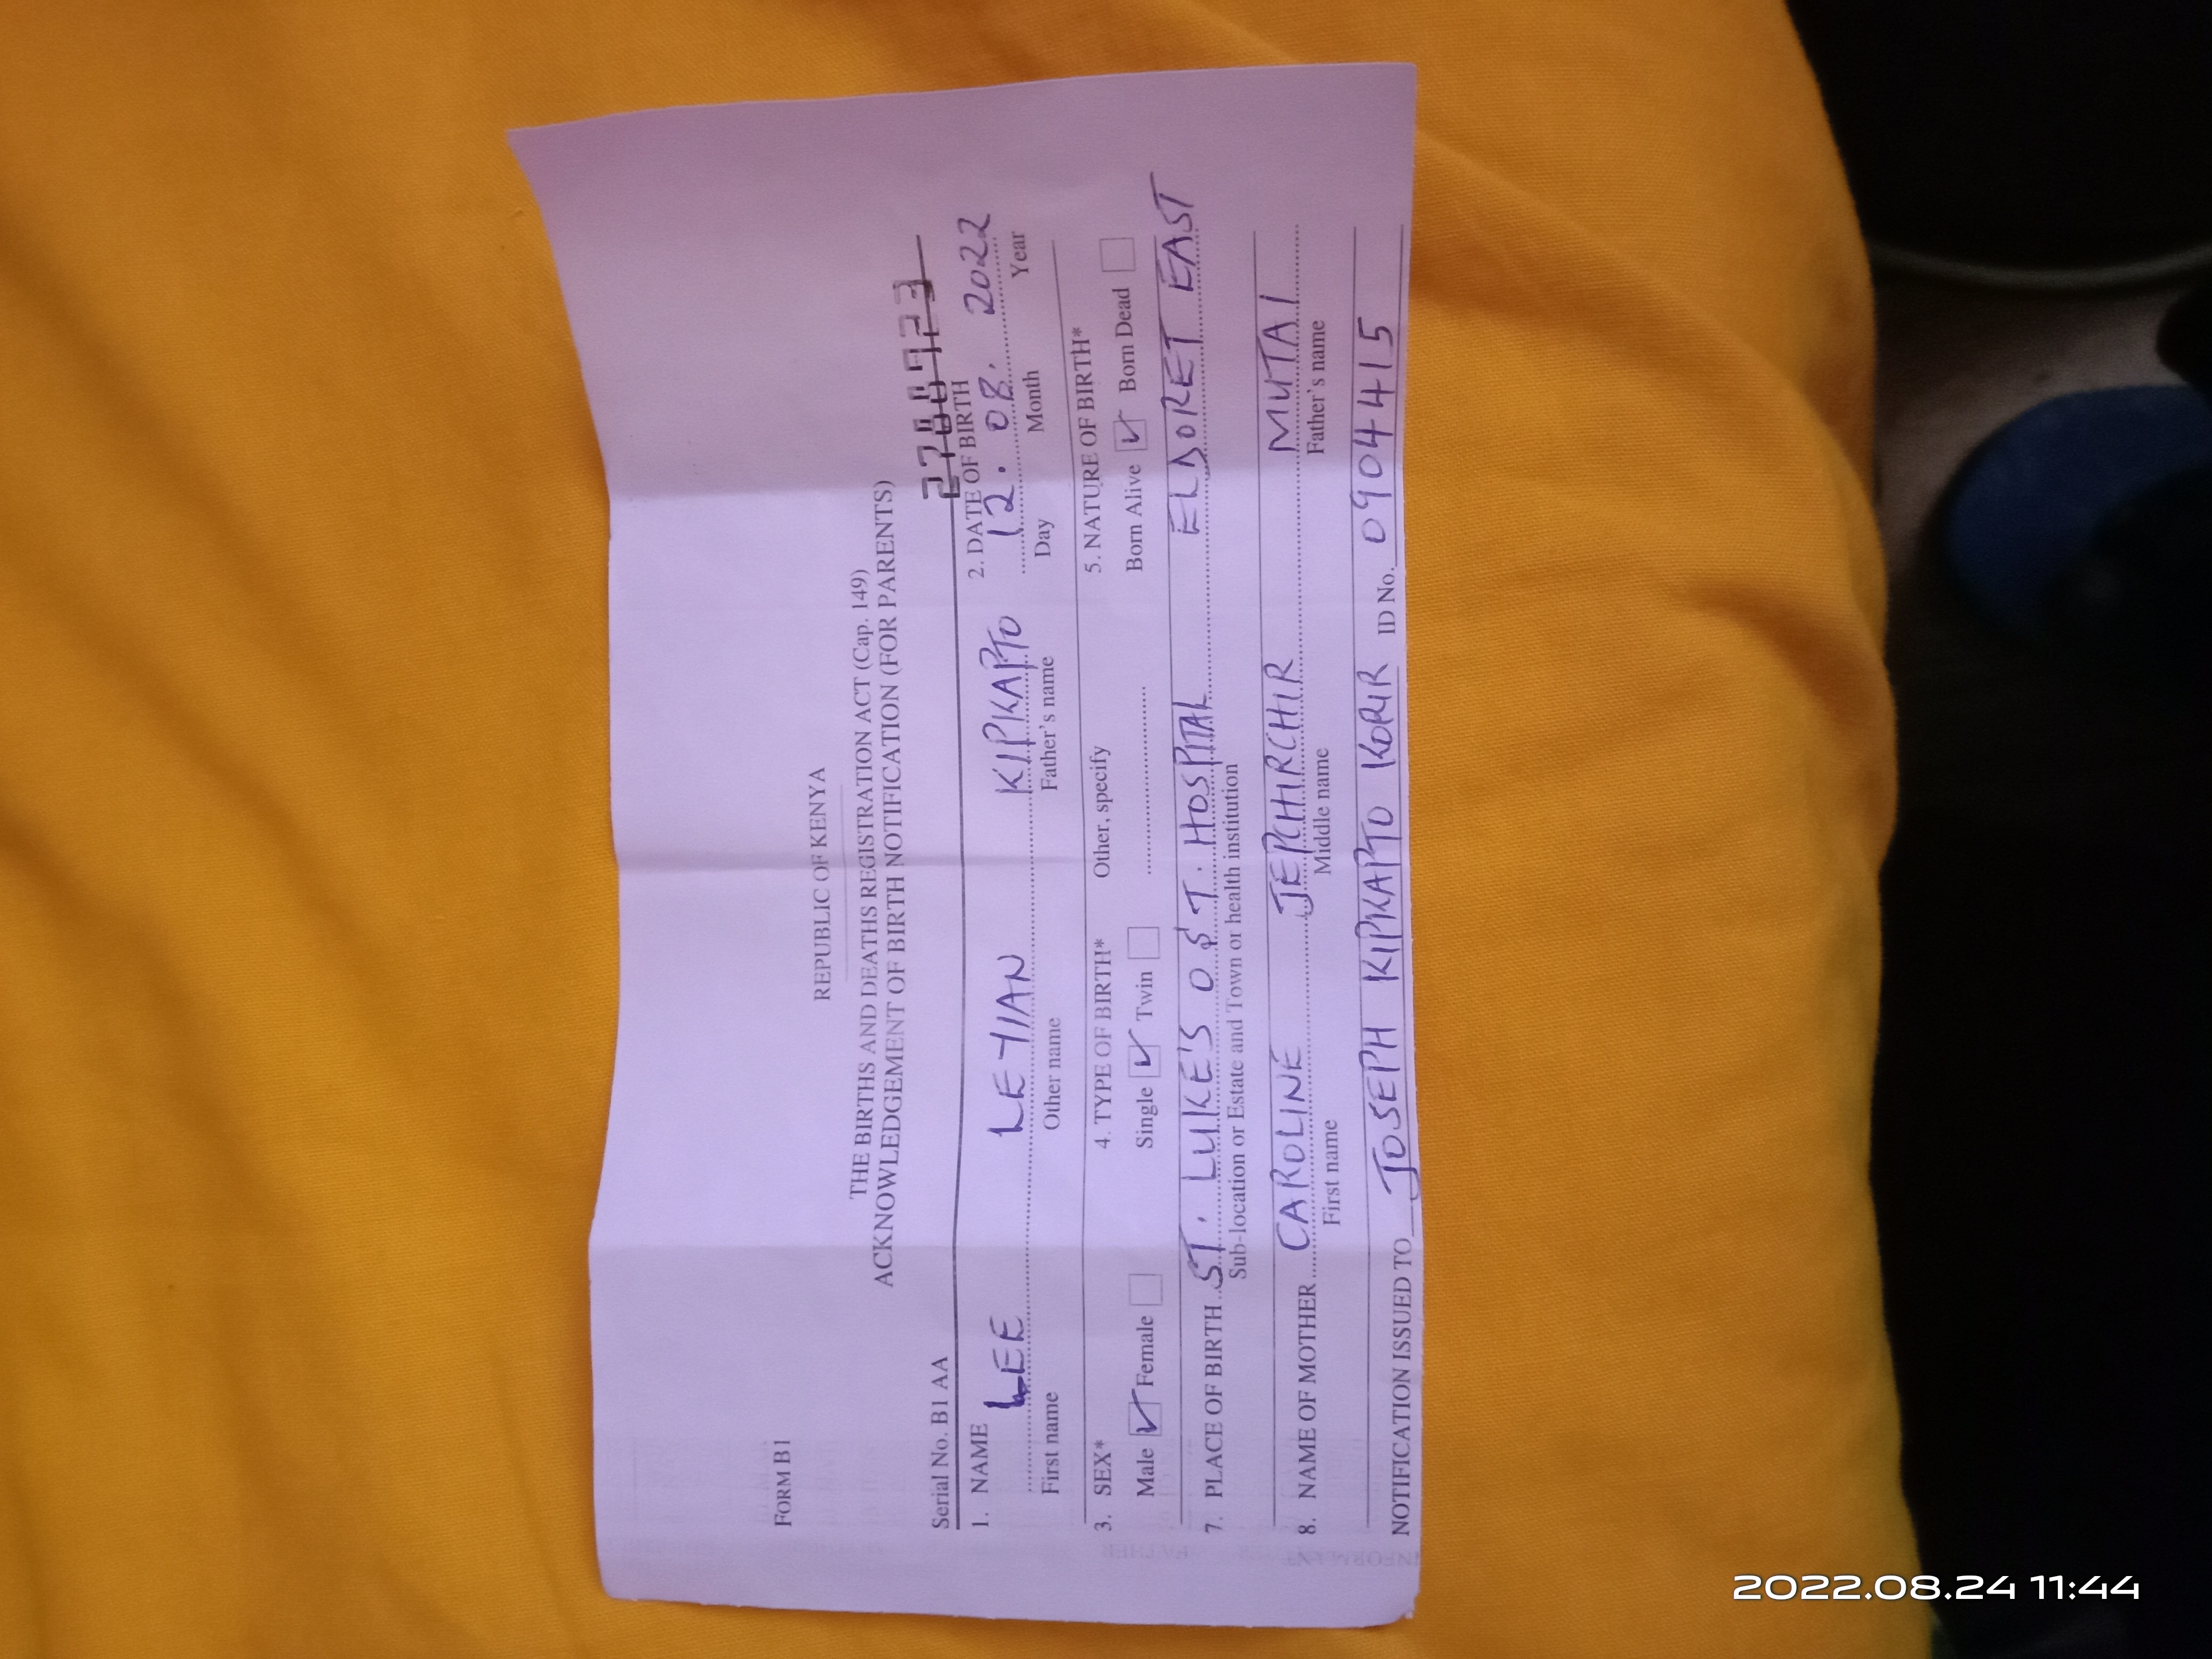 FORM B1
REPUBLIC OF KENYA
THE BIRTHS AND DEATHS REGISTRATION ACT (Cap. 149)
ACKNOWLEDGEMENT OF BIRTH NOTIFICATION (FOR PARENTS)
Serial No. B1 AA
1. NAME LEE LEYIAN KIPKAPTO 2. DATE OF BIRTH 12. 08. 2022
First name Other name Father's name Day Month Year
3. SEX* 4. TYPE OF BIRTH* Other, specify 5. NATURE OF BIRTH*
Male ✓ Female Single ✓ Twin Born Alive ✓ Born Dead
7. PLACE OF BIRTH ST. LUKE'S O & T. HOSPITAL ELDORET EAST
Sub-location or Estate and Town or health institution
8. NAME OF MOTHER CAROLINE JEPCHIRCHIR MUTAI
First name Middle name Father's name
NOTIFICATION ISSUED TO JOSEPH KIPKAPTO KORIR ID No. 0904415
2022.08.24 11:44